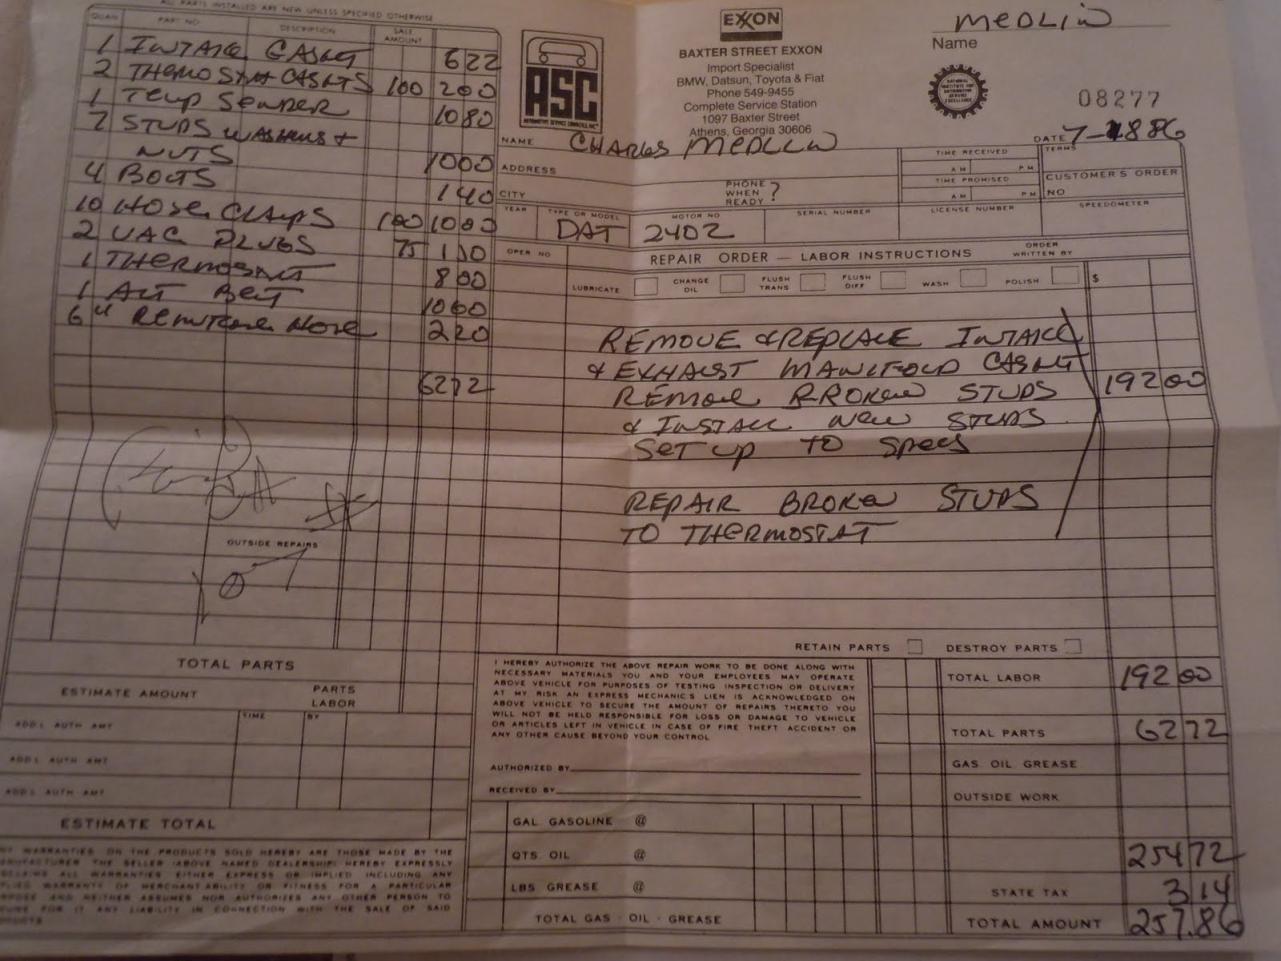 ALL PARTS INSTALLED ARE NEW UNLESS SPECIFIED OTHERWISE
QUAN. PART NO. DESCRIPTION SALE AMOUNT
1 INTAKE GASKET 6 22
2 THERMOSTAT GASKETS 100 2 00
1 TEMP SENDER 10 80
7 STUDS WASHERS +
NUTS 10 00
4 BOLTS 1 40
10 HOSE CLAMPS 100 10 00
2 VAC PLUGS 75 1 50
1 THERMOSTAT 8 00
1 ALT BELT 10 60
6" HOSE 2 20
62 72
OUTSIDE REPAIRS
TOTAL PARTS
ESTIMATE AMOUNT PARTS LABOR
ADD'L AUTH AMT TIME BY
ADD'L AUTH AMT
ADD'L AUTH AMT
ESTIMATE TOTAL
ASC
EXXON
BAXTER STREET EXXON
Import Specialist
BMW, Datsun, Toyota & Fiat
Phone 549-9455
Complete Service Station
1097 Baxter Street
Athens, Georgia 30606
MEDLIN
Name
08277
DATE 7-1886
NAME CHARLES MEDLIN
ADDRESS
CITY
PHONE WHEN READY?
TIME RECEIVED
A M P M
TIME PROMISED
A M P M
TERMS
CUSTOMER'S ORDER NO
YEAR TYPE OR MODEL MOTOR NO SERIAL NUMBER LICENSE NUMBER SPEEDOMETER
DAT 240Z
OPER NO REPAIR ORDER — LABOR INSTRUCTIONS ORDER WRITTEN BY
LUBRICATE CHANGE OIL FLUSH TRANS FLUSH DIFF WASH POLISH $
REMOVE & REPLACE INTAKE
& EXHAUST MANIFOLD GASKET
REMOVE BROKEN STUDS 192 00
& INSTALL NEW STUDS
SET UP TO SPECS
REPAIR BROKEN STUDS
TO THERMOSTAT
RETAIN PARTS DESTROY PARTS
I HEREBY AUTHORIZE THE ABOVE REPAIR WORK TO BE DONE ALONG WITH
NECESSARY MATERIALS YOU AND YOUR EMPLOYEES MAY OPERATE
ABOVE VEHICLE FOR PURPOSES OF TESTING INSPECTION OR DELIVERY
AT MY RISK AN EXPRESS MECHANIC'S LIEN IS ACKNOWLEDGED ON
ABOVE VEHICLE TO SECURE THE AMOUNT OF REPAIRS THERETO YOU
WILL NOT BE HELD RESPONSIBLE FOR LOSS OR DAMAGE TO VEHICLE
OR ARTICLES LEFT IN VEHICLE IN CASE OF FIRE THEFT ACCIDENT OR
ANY OTHER CAUSE BEYOND YOUR CONTROL
AUTHORIZED BY
RECEIVED BY
TOTAL LABOR 192 00
TOTAL PARTS 62 72
GAS OIL GREASE
OUTSIDE WORK
254 72
STATE TAX 3 14
TOTAL AMOUNT 257.86
GAL GASOLINE @
QTS OIL @
LBS GREASE @
TOTAL GAS - OIL - GREASE
WARRANTIES ON THE PRODUCTS SOLD HEREBY ARE THOSE MADE BY THE
THE SELLER (ABOVE NAMED DEALERSHIP) HEREBY EXPRESSLY
ALL WARRANTIES EITHER EXPRESS OR IMPLIED INCLUDING ANY
WARRANTY OF MERCHANTABILITY OR FITNESS FOR A PARTICULAR
AND NEITHER ASSUMES NOR AUTHORIZES ANY OTHER PERSON TO
FOR IT ANY LIABILITY IN CONNECTION WITH THE SALE OF SAID